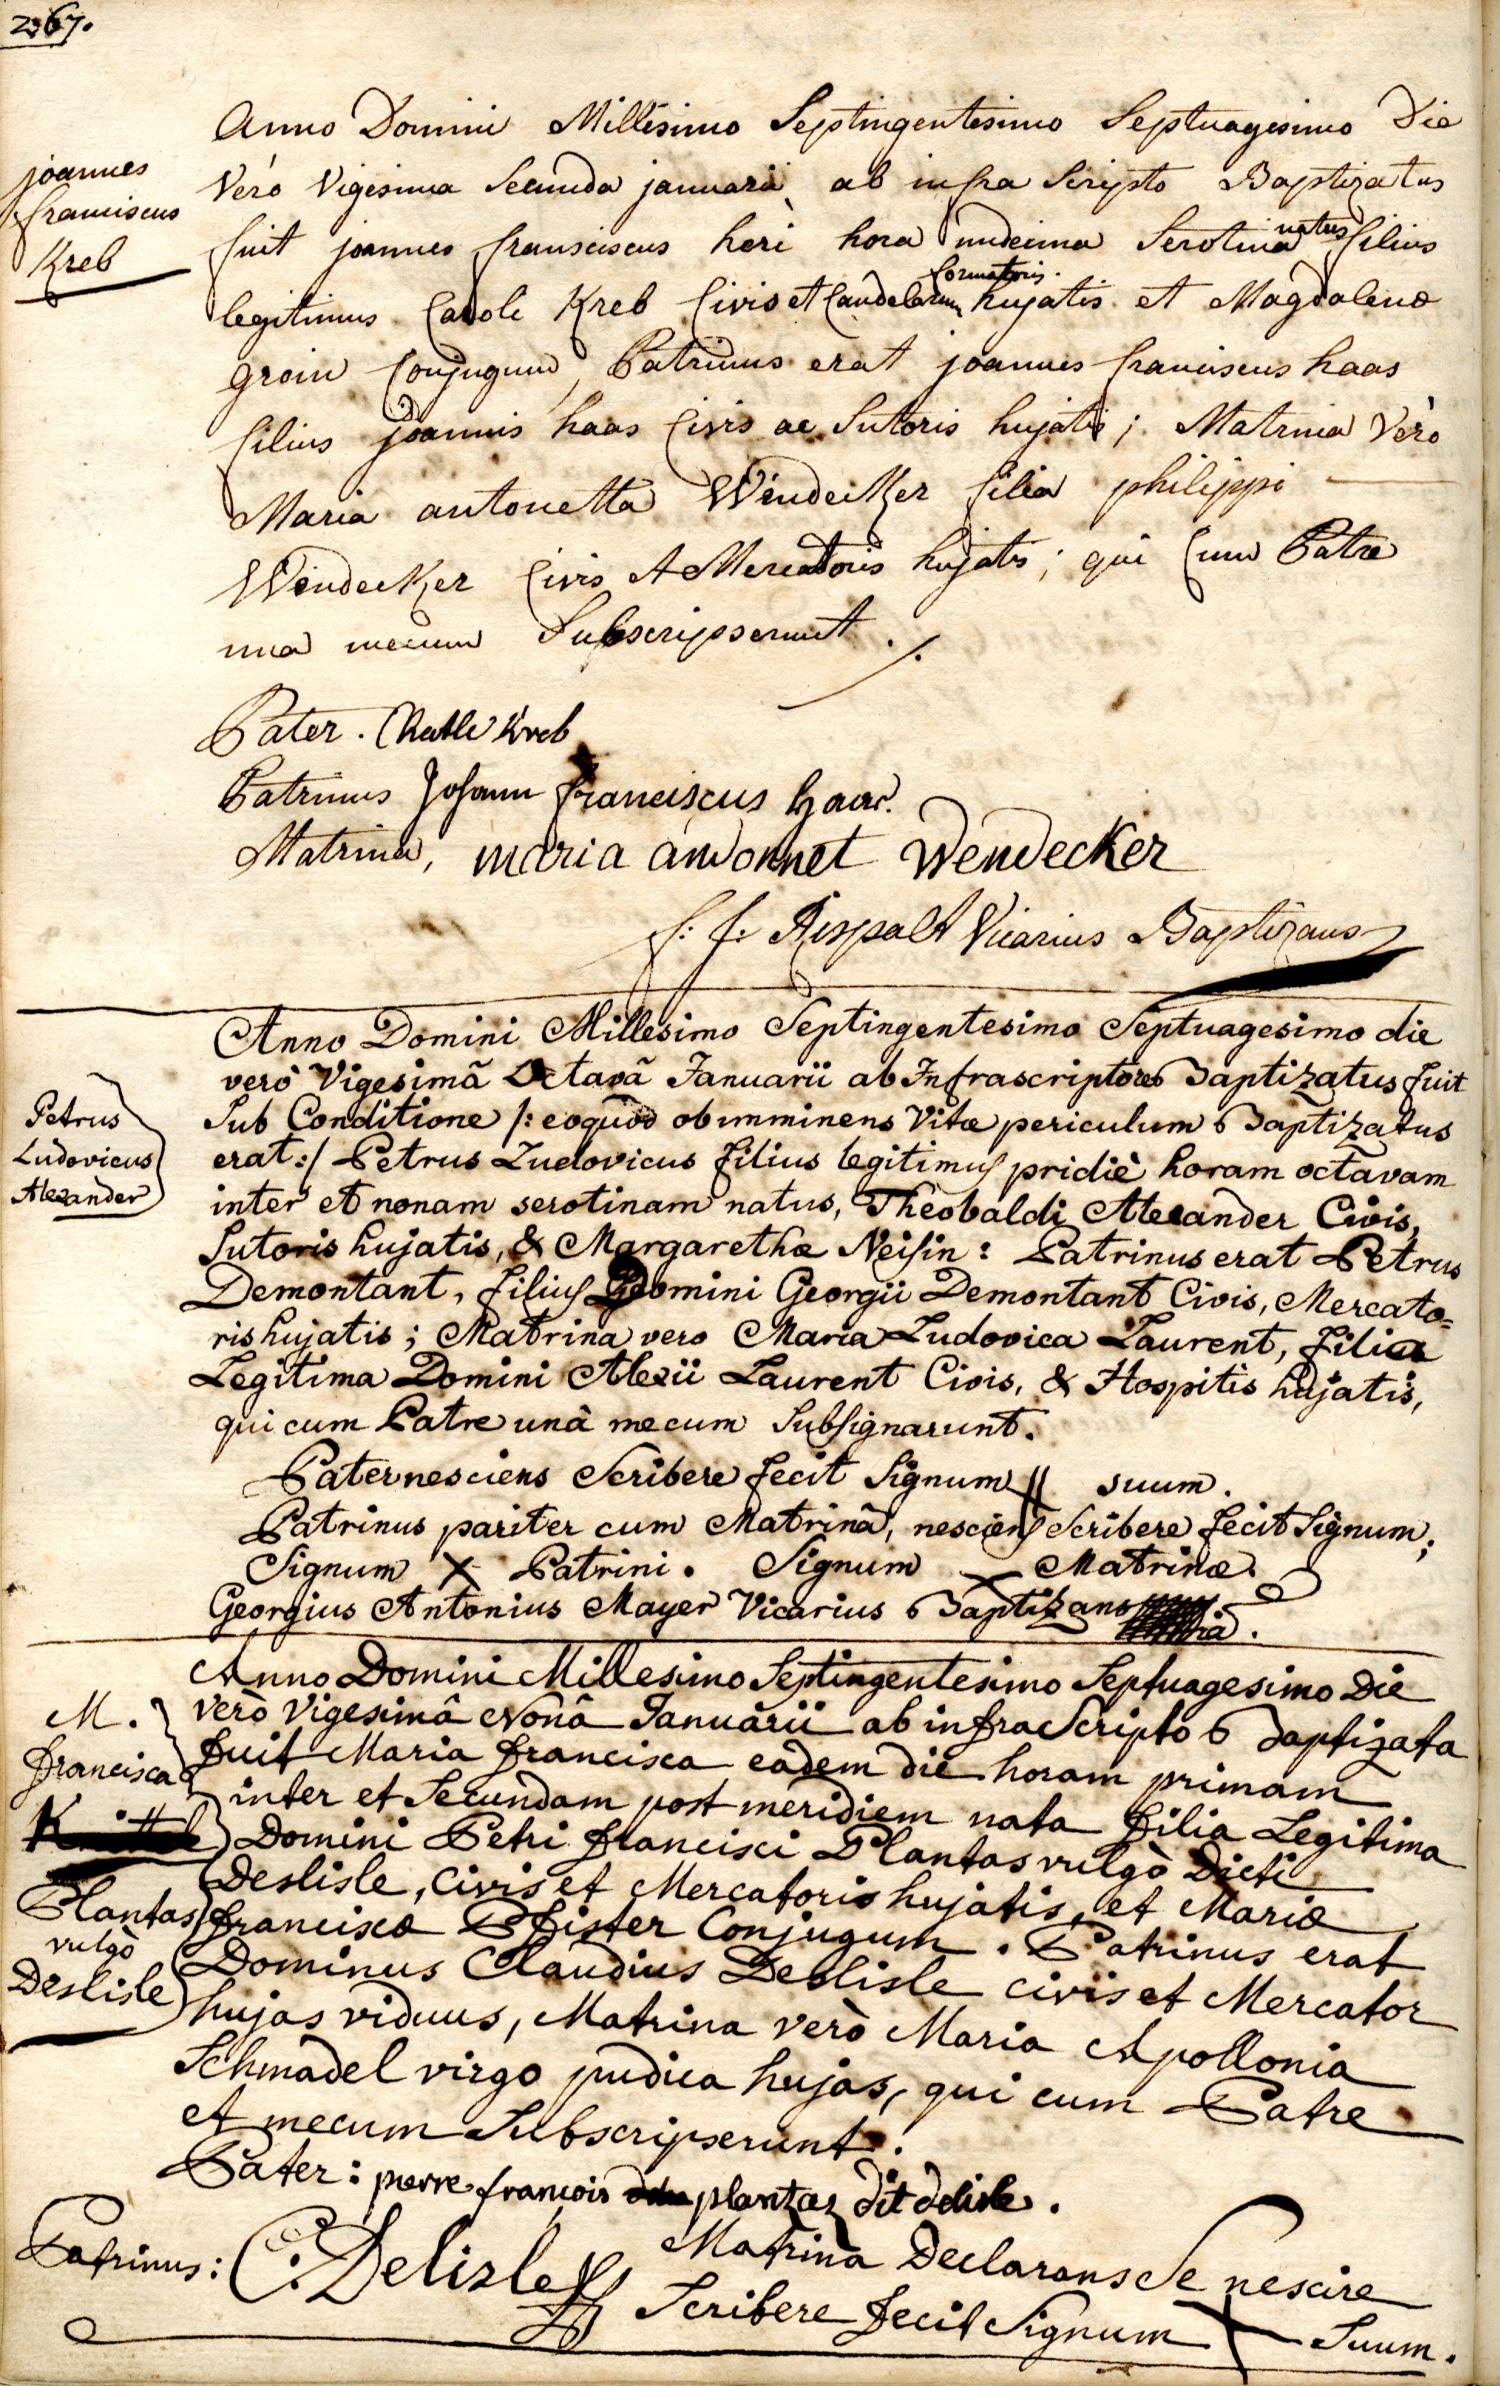 267.
joannes
franciscus
Kreb
Anno Domini Millesimo Septingentesimo Septuagesimo Die
Verò Vigesima Secunda januarii ab infra Scripto Baptizatus
fuit joannes fransciscus heri hora undecima Serotina natus filius
legitimus Caroli Kreb Civis et Candelarum formatoris hujatis et Magdalenæ
groin Conjugum, Patrinus erat joannes franciscus haas
filius joannis haas Civis ac Sutoris hujatis; Matrina Verò
Maria antonetta Windecker filia philippi
Windecker Civis et Mercatoris hujatis; qui Cum Patre
una mecum Subscripserunt ./.
Pater. Kreb
Patrinus Johann franciscus haas.
Matrina, maria andonnet Wendecker
f: f: Rispalt Vicarius Baptizans
Petrus
Ludovicus
Alexander
Anno Domini Millesimo Septingentesimo Septuagesimo die
verò Vigesimâ Octavâ Januarii ab Infrascripto Baptizatus fuit
Sub Conditione /: eoquòd ob imminens Vitæ periculum Baptizatus
erat :/ Petrus Ludovicus filius legitimus pridiè horam octavam
inter et nonam serotinam natus, Theobaldi Alexander Civis,
Sutoris hujatis, & Margarethæ Neisin: Patrinus erat Petrus
Demontant, filius Domini Georgii Demontant Civis, Mercato=
ris hujatis; Matrina vero Maria Ludovica Laurent, filia
Legitima Domini Alexii Laurent Civis, & Hospitis hujatis,
qui cum Patre unà mecum Subsignarunt.
Pater nesciens Scribere fecit Signum || suum.
Patrinus pariter cum Matrinâ, nesciens Scribere fecit Signum;
Signum X Patrini. Signum X Matrinæ.
Georgius Antonius Mayer Vicarius Baptizans
M.
francisca
Plantas
vulgò
Deslisle
Anno Domini Millesimo Septingentesimo Septuagesimo Die
verò Vigesimâ Nonâ Januarii ab infraScripto Baptizata
fuit Maria francisca eadem die horam primam
inter et Secundam post meridiem nata filia Legitima
Domini Petri francisci Plantas vulgò Dicti
Deslisle, Civis et Mercatoris hujatis, et Mariæ
franciscæ Pfister Conjugum. Patrinus erat
Dominus Claudius Deslisle civis et Mercator
hujas viduus, Matrina verò Maria Apollonia
Schmadel virgo pudica hujas, qui cum Patre
et mecum Subscripserunt.
Pater: pierre françois plantaz dit delisle.
Patrinus: C: Delizle
Matrina Declarans Se nescire
Scribere fecit Signum X Suum.